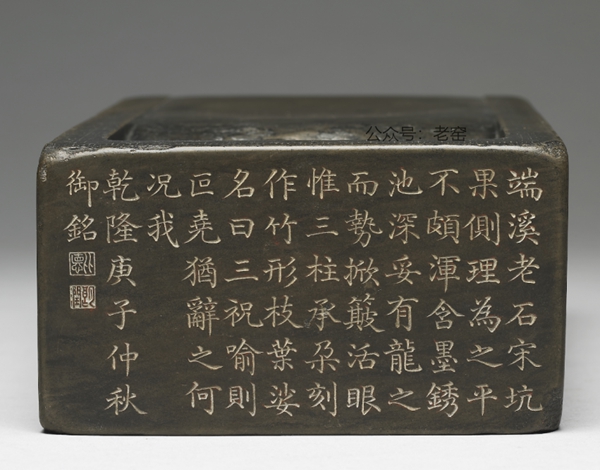 公众号：老窑
端溪老石宋坑
果側理為之平
不頗渾含墨銹
池深妥有龍之
而勢掀簸活眼
惟三柱承朵刻
作竹形枝葉娑
名曰三祝喻則
叵堯猶辭之何
况我
乾隆庚子仲秋
御銘
比德
朗潤